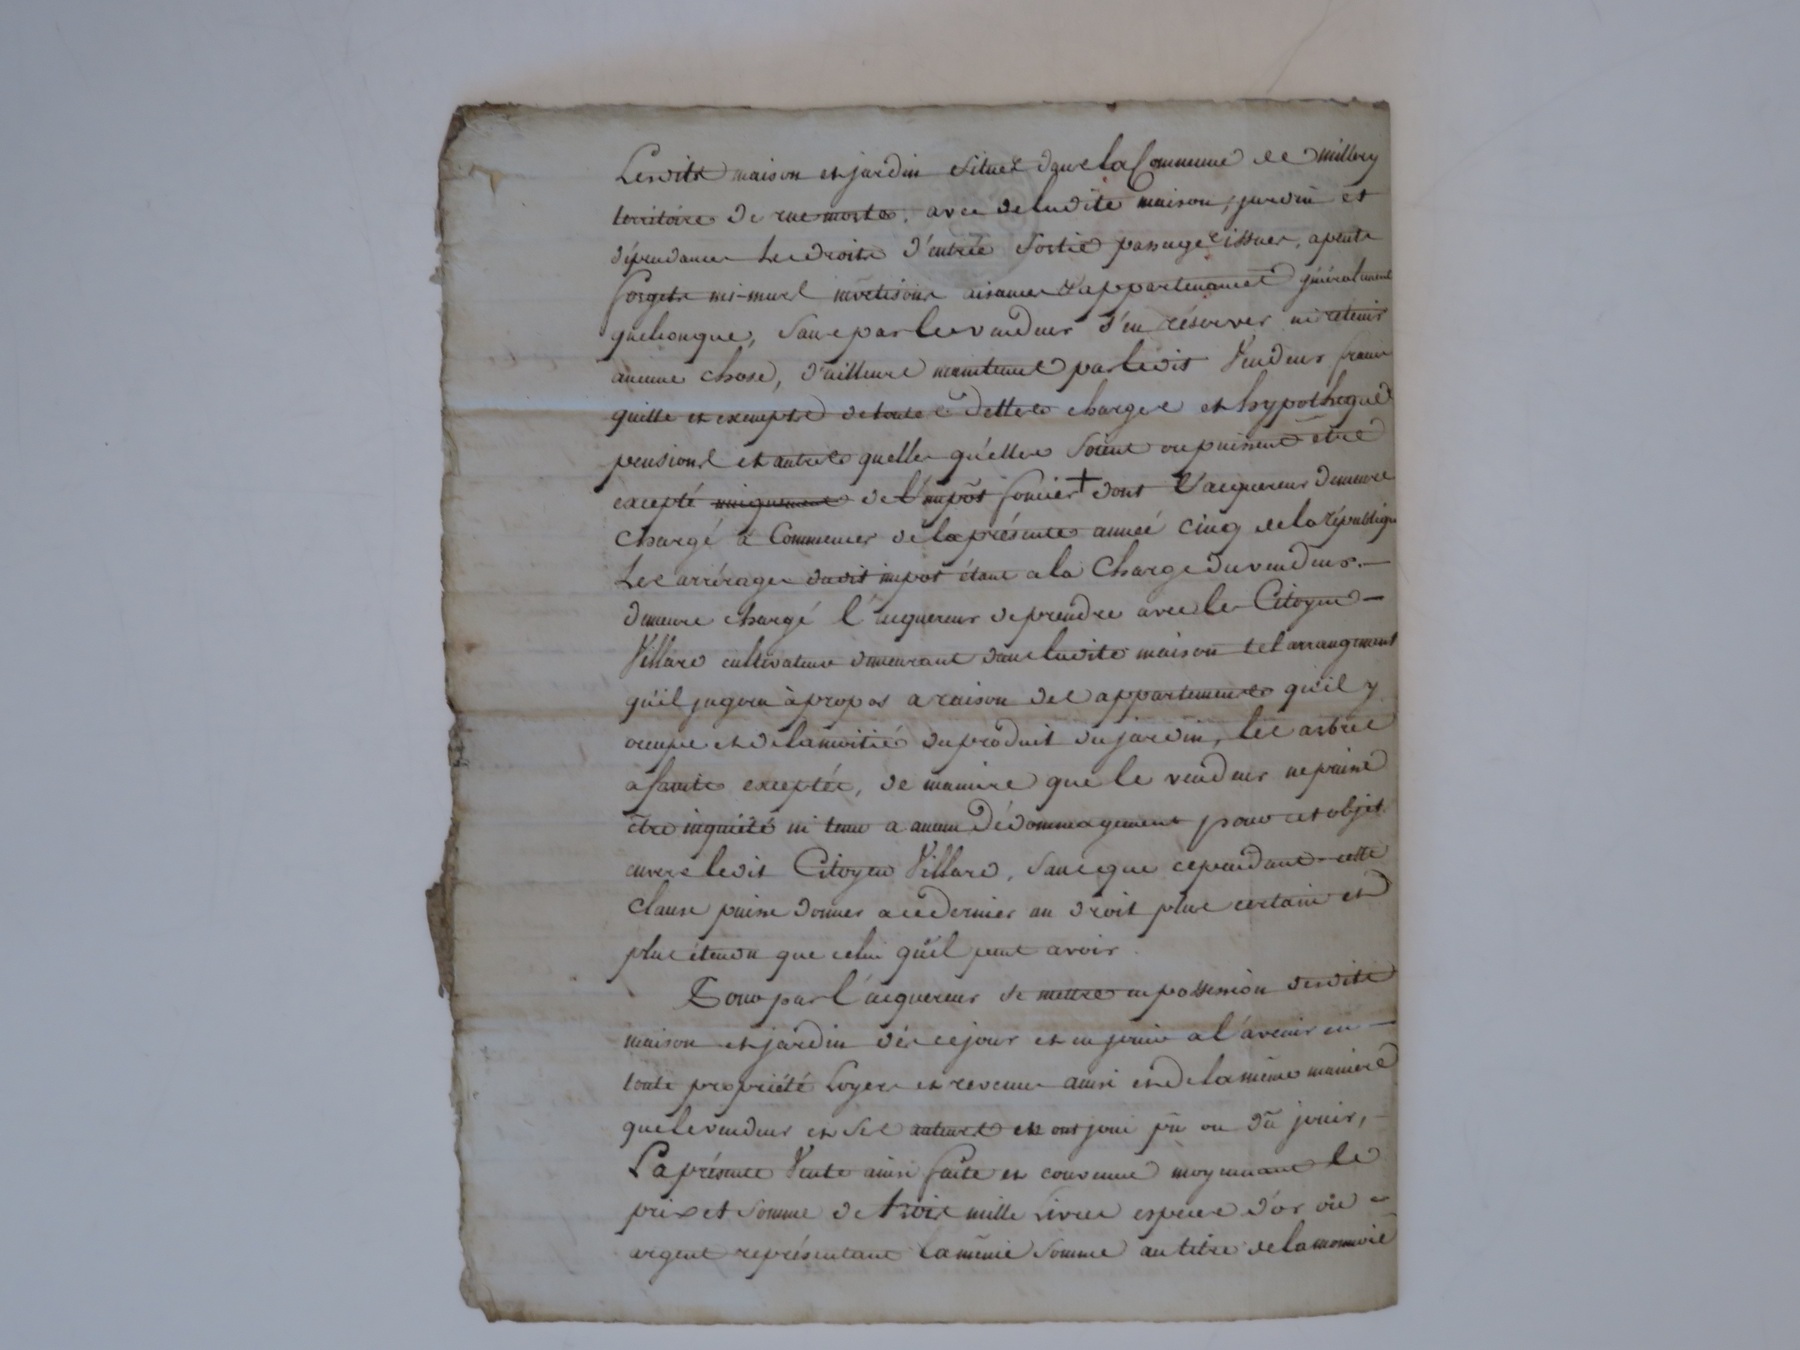 Lesdits maison et jardin situés dans la Commune de millery
territoire de rue morte, avec de ladite maison, jardin et
dépendances les droits d'entrée sortie passage issues, apents
forgets mi-murs aisances & appartenances généralement
quelconque, sans par le vendeur s'en réserver ni retenir
aucune chose, d'ailleurs maintenus par ledit Vendeur francs
quitte et exempts de toutes dettes charges et hypotheques
pensions et autres quelles qu'elles soient ou puissent être
excepté uniquement de l'impôt foncier + dont l'acquereur demeure
chargé à Commencer de la présente année cinq de la républiq
Les arrérages dudit impot étant a la Charge du vendeur. —
demeure chargé l'acquereur de prendre avec le Citoyen —
Villard cultivateur demeurant dans ladite maison tel arrangement
qu'il jugera à propos a raison des appartements qu'il y
occupe et de la moitié du produit du jardin, les arbres
a fruits exceptés, de maniere que le vendeur ne puisse
être inquiété ni tenu a aucun dédommagement pour cet objet
envers ledit Citoyen Villard, sans que cependant cette
clause puisse donner a ce dernier un droit plus certain et
plus étendu que celui qu'il peut avoir.
Pour par l'acquereur se mettre en possession desdits
maison et jardin dés ce jour et en jouir a l'avenir en —
toute propriété loyers et revenus ainsi et de la même maniere
que le vendeur et ses auteurs en ont joui pû ou dû jouir, —
La présente Vente ainsi faite et convenue moyennant le
prix et somme de trois mille Livres especes d'or ou —
argent représentant la même somme au titre de la monnoie